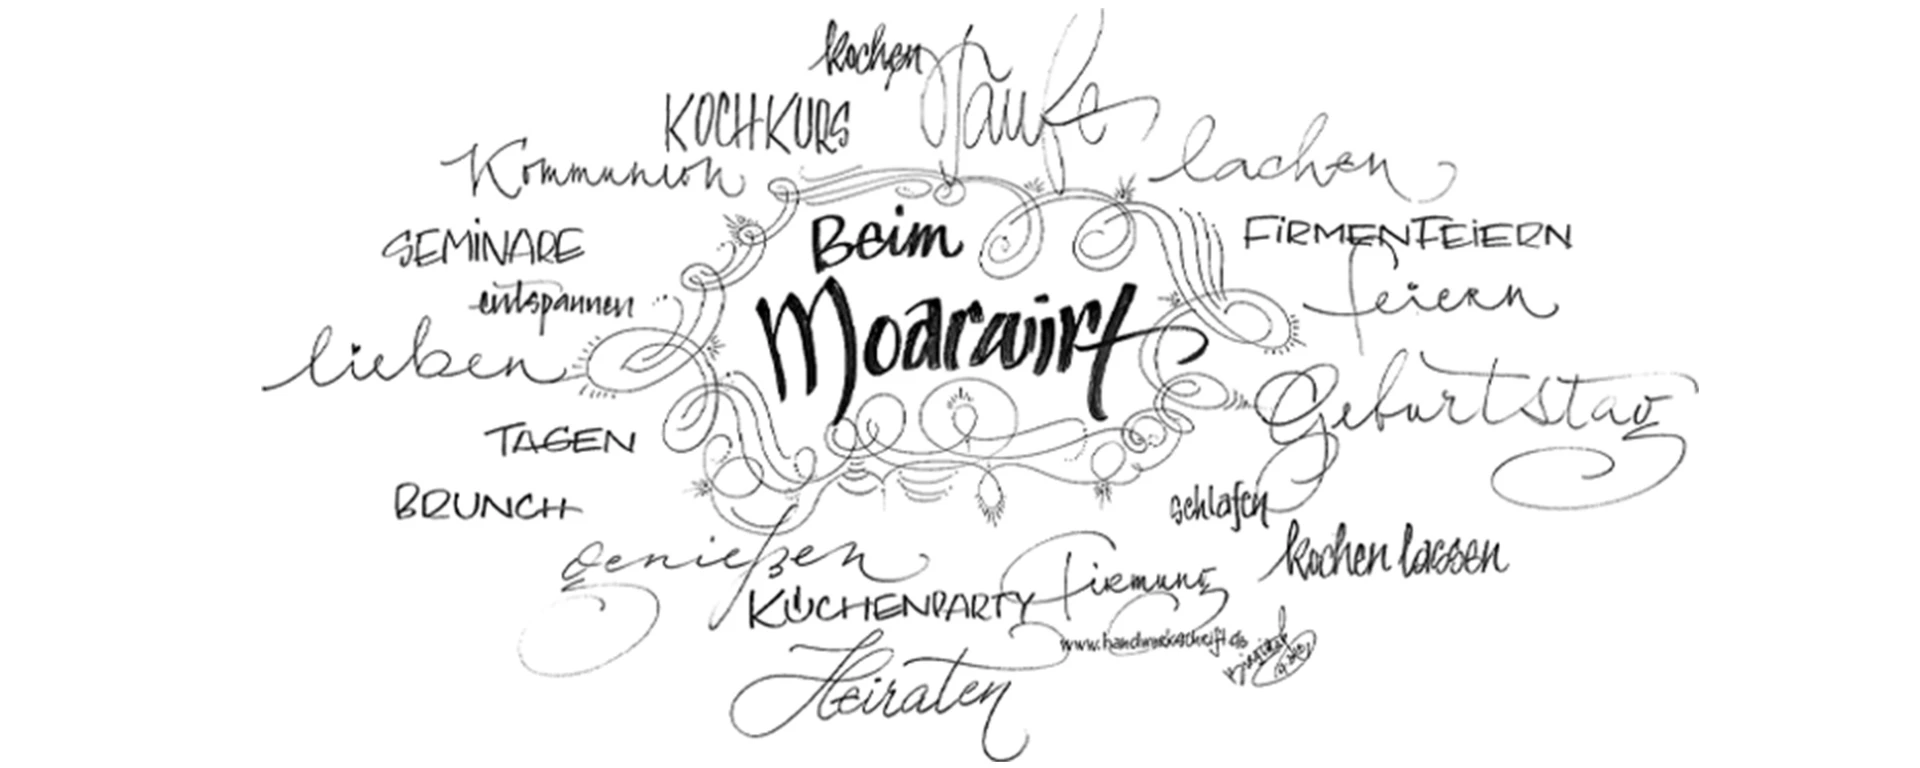 kochen
Taufe
KOCHKURS
Kommunion
lachen
SEMiNARE
Beim
FiRMENFEiERN
entspannen
feiern
Moarwirt
lieben
Geburtstag
TAGEN
BRUNCH
schlafen
genießen
kochen lassen
KÜCHENPARTY
Firmung
www.handwerkschrift.de
Heiraten